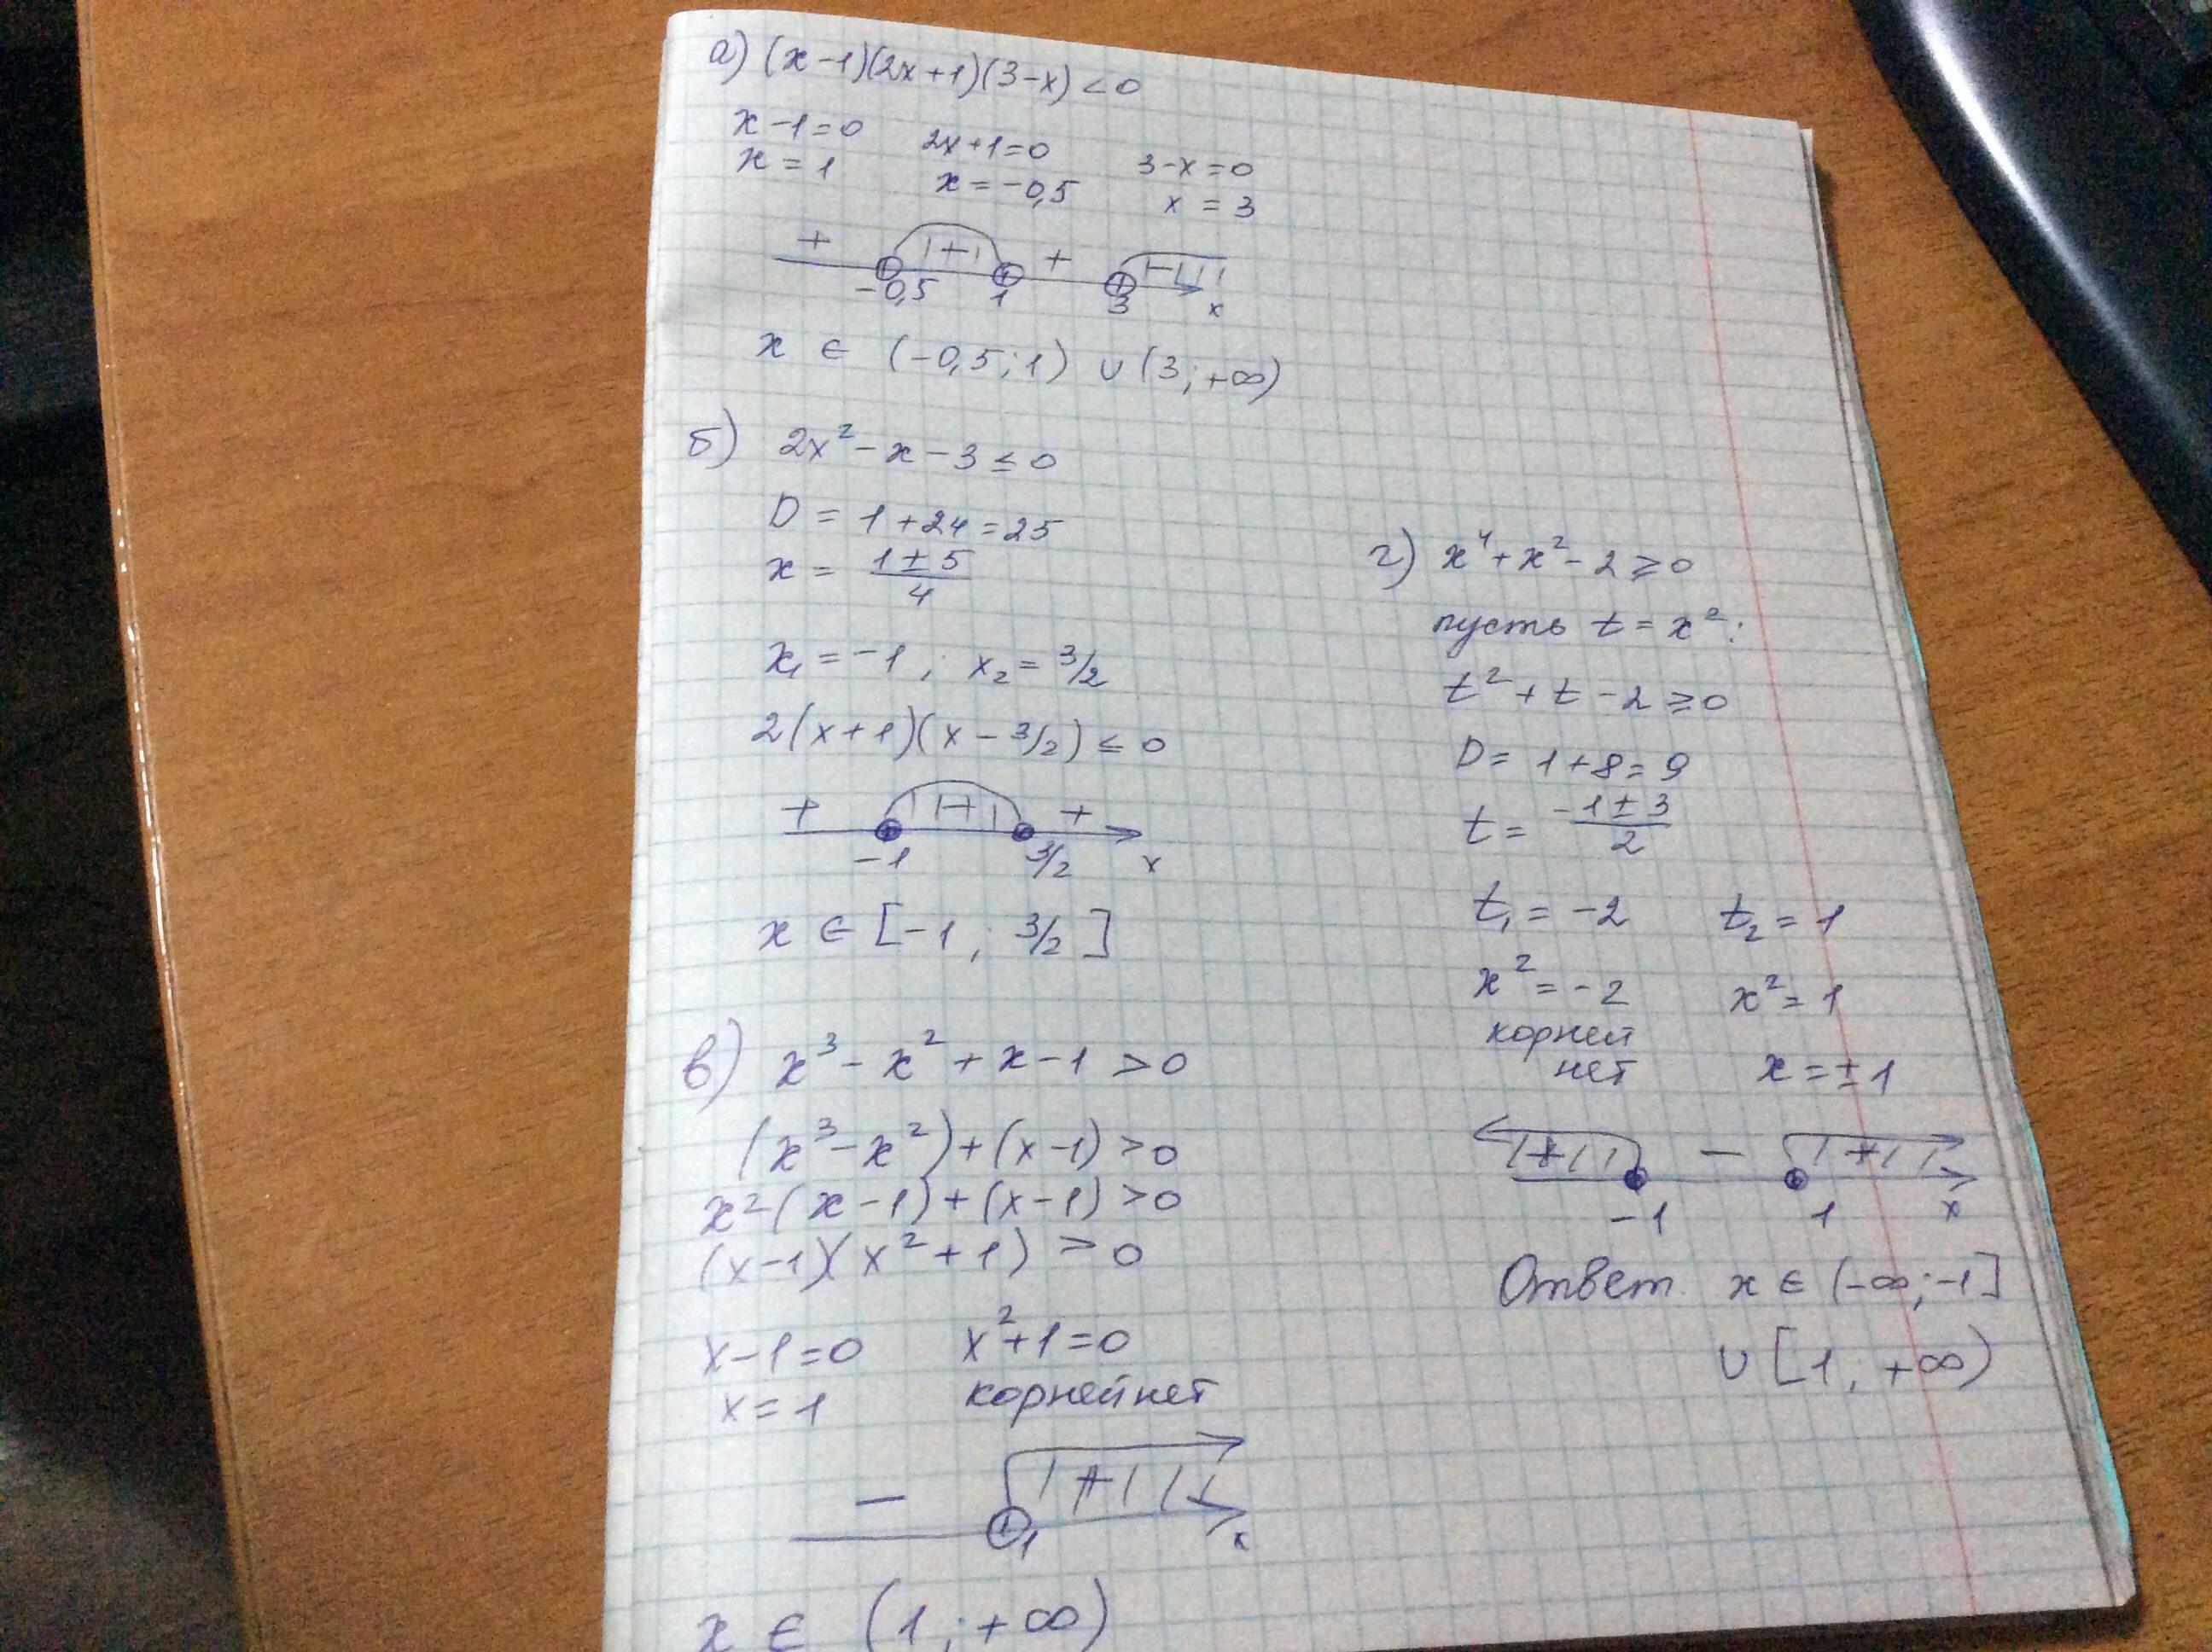 а) (x-1)(2x+1)(3-x)<0
x-1=0 2x+1=0 3-x=0
x=1 x=-0,5 x=3
+ - + -
-0,5 1 3 x
x ∈ (-0,5; 1) ∪ (3; +∞)
б) 2x²-x-3≤0
D = 1+24=25
x = (1±5)/4
x₁=-1; x₂=3/2
2(x+1)(x-3/2)≤0
+ - +
-1 3/2 x
x ∈ [-1; 3/2]
в) x³-x²+x-1>0
(x³-x²)+(x-1)>0
x²(x-1)+(x-1)>0
(x-1)(x²+1)>0
x-1=0 x²+1=0
x=1 корней нет
- +
1 x
x ∈ (1; +∞)
г) x⁴+x²-2≥0
пусть t=x²:
t²+t-2≥0
D=1+8=9
t=(-1±3)/2
t₁=-2 t₂=1
x²=-2 x²=1
корней
нет x=±1
+ - +
-1 1 x
Ответ. x ∈ (-∞; -1]
∪ [1; +∞)